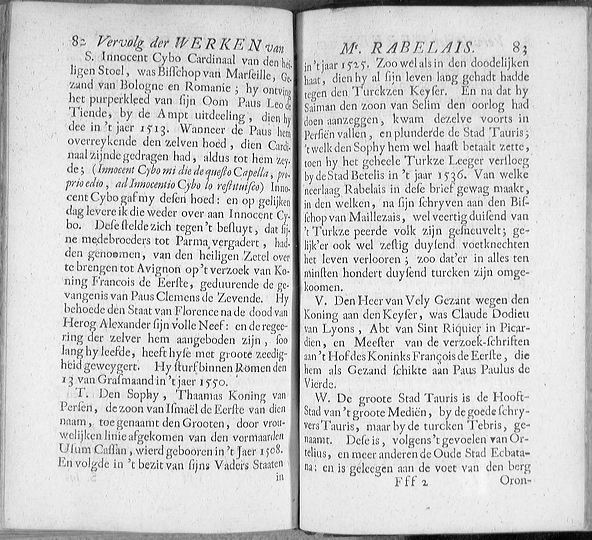 82 Vervolg der WERKEN van
S. Innocent Cybo Cardinaal van den hei-
ligen Stoel, was Bisschop van Marseille, Ge-
zand van Bologne en Romanie; hy ontving
het purperkleed van sijn Oom Paus Leo de
Tiende, by de Ampt uitdeeling, dien hy
dee in 't jaer 1513. Wanneer de Paus hem
overreykende den zelven hoed, dien Cardi-
naal zijnde gedragen had, aldus tot hem zey-
de; (Innocent Cybo mi die de questo Capella, pro-
prio edio, ad Innocentio Cybo lo restituiseo) Inno-
cent Cybo gaf my desen hoed: en op gelijken
dag levere ik die weder over aan Innocent Cy-
bo. Dese stelde zich tegen 't besluyt, dat sij-
ne medebroeders tot Parma vergadert, had-
den genoomen, van den heiligen Zetel over
te brengen tot Avignon op 't verzoek van Ko-
ning Francois de Eerste, geduurende de ge-
vangenis van Paus Clemens de Zevende. Hy
behoede den Staat van Florence na de dood van
Herog Alexander sijn volle Neef: en de regee-
ring der zelver hem aangeboden zijn, soo
lang hy leefde, heeft hyse met groote zeedig-
heid geweygert. Hy sturf binnen Romen den
13 van Grasmaand in 't jaer 1550.
T. Den Sophy, Thaamas Koning van
Persen, de zoon van Ismaël de Eerste van dien
naam, toe genaamt den Grooten, door vrou-
welijken linie afgekomen van den vermaarden
Usum Cassan, wierd gebooren in 't Jaer 1508.
En volgde in 't bezit van sijns Vaders Staaten
in
Mr. RABELAIS. 83
in 't jaer 1525. Zoo wel als in den doodelijken
haat, dien hy al sijn leven lang gehadt hadde
tegen den Turckzen Keyser. En na dat hy
Saiman den zoon van Selim den oorlog had
doen aanzeggen, kwam dezelve voorts in
Persiën vallen, en plunderde de Stad Tauris;
't welk den Sophy hem wel haast betaalt zette,
toen hy het geheele Turkze Leeger versloeg
by de Stad Betelis in 't jaar 1536. Van welke
neerlaag Rabelais in dese brief gewag maakt,
in den welken, na sijn schryven aan den Bis-
schop van Maillezais, wel veertig duisend van
't Turkze peerde volk zijn gesneuvelt; ge-
lijk'er ook wel zestig duysend voetknechten
het leven verlooren; zoo dat'er in alles ten
minsten hondert duysend turcken zijn omge-
koomen.
V. Den Heer van Vely Gezant wegen den
Koning aan den Keyser, was Claude Dodieu
van Lyons, Abt van Sint Riquier in Picar-
dien, en Meester van de verzoek-schriften
aan 't Hof des Koninks François de Eerste, die
hem als Gezand schikte aan Paus Paulus de
Vierde.
W. De groote Stad Tauris is de Hooft-
Stad van 't groote Mediën, by de goede schry-
vers Tauris, maar by de turcken Tebris, ge-
naamt. Dese is, volgens 't gevoelen van Or-
telius, en meer anderen de Oude Stad Ecbata-
na: en is geleegen aan de voet van den berg
Fff 2 Oron-